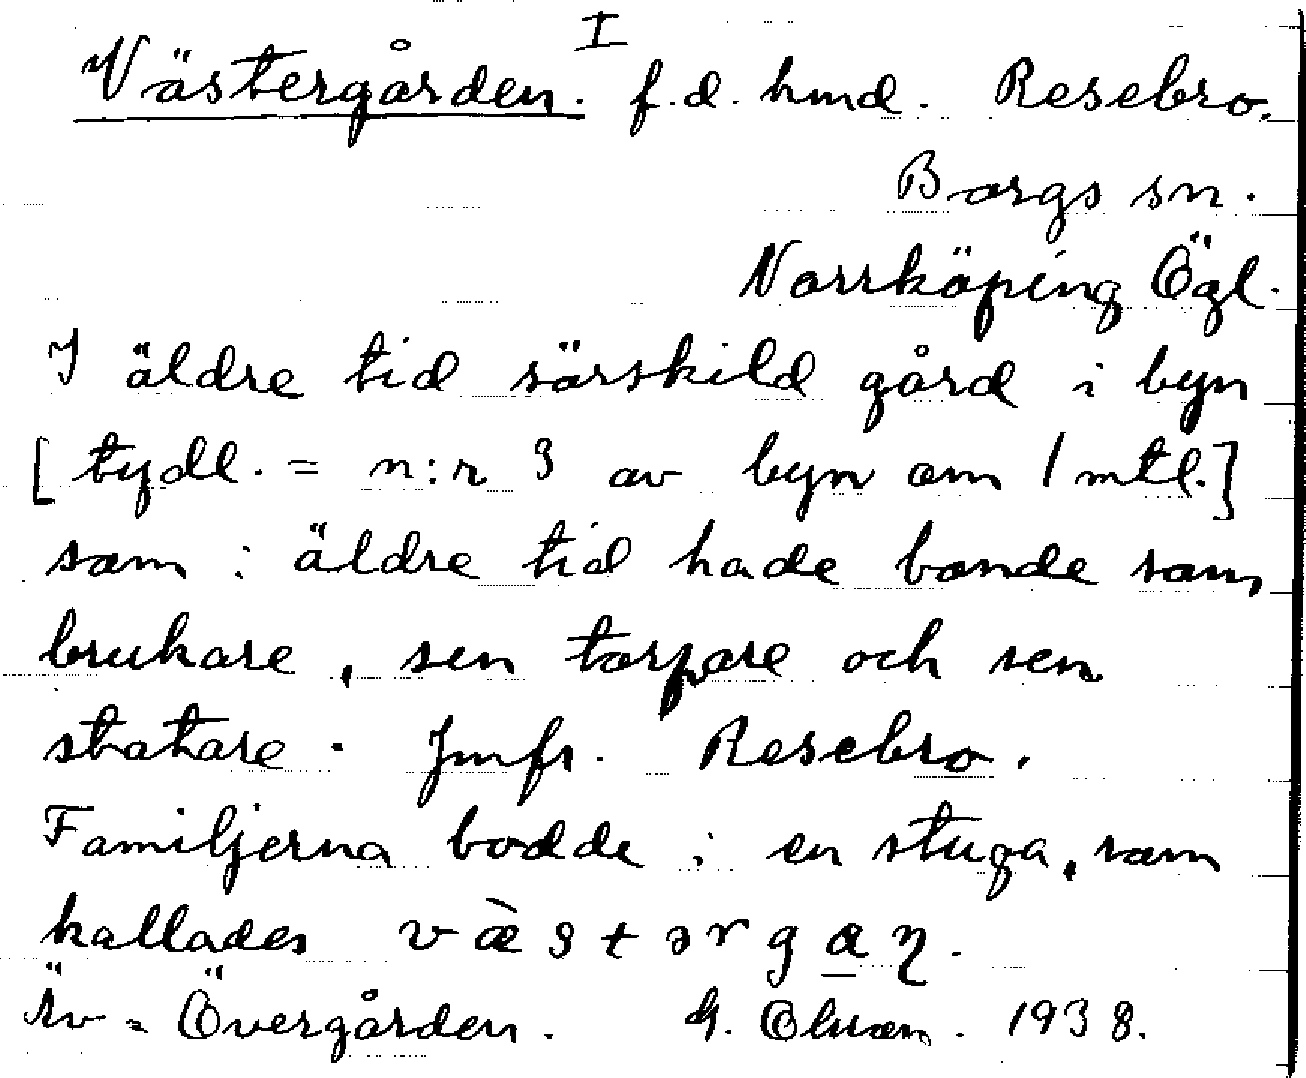 Västergården. I f.d. hmd. Resebro.
Borgs sn.
Norrköping Ögl.
I äldre tid särskild gård i byn
[tydl. = n:r 3 av byn om 1 mtl.]
som i äldre tid hade bonde som
brukare, sen torpare och sen
statare. Jmfr. Resebro.
Familjerna bodde i en stuga, som
kallades væ̀stərgaɳ.
Äv = Övergården. G. 1938.